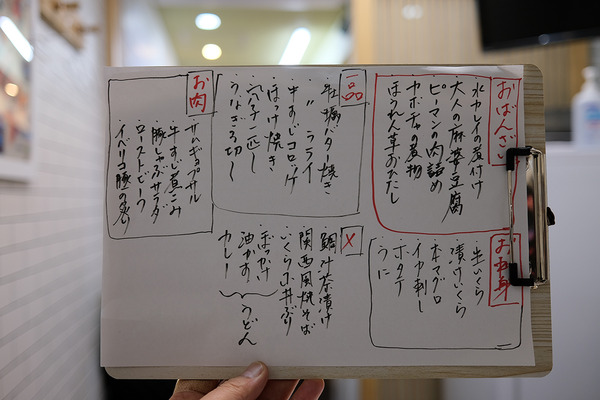 おばんざい
・水カレイの煮付け
・大人の麻婆豆腐
・ピーマンの肉詰め
・カボチャの煮物
・ほうれん草おひたし
一品
・牡蠣バター焼き
・〃 フライ
・牛すじコロッケ
・ほっけ焼き
・穴子一匹
・うなぎざく切り
お肉
・サムギョプサル
・牛すじ煮こみ
・豚しゃぶサラダ
・ローストビーフ
・イベリコ豚の炙り
お刺身
・生いくら
・漬けいくら
・本マグロ
・イカ刺し
・ホタテ
・うに
〆
・鯛汁茶漬け
・関西風焼そば
・いくら小丼ぶり
・ぼっかけ
・油かす
・カレー
うどん